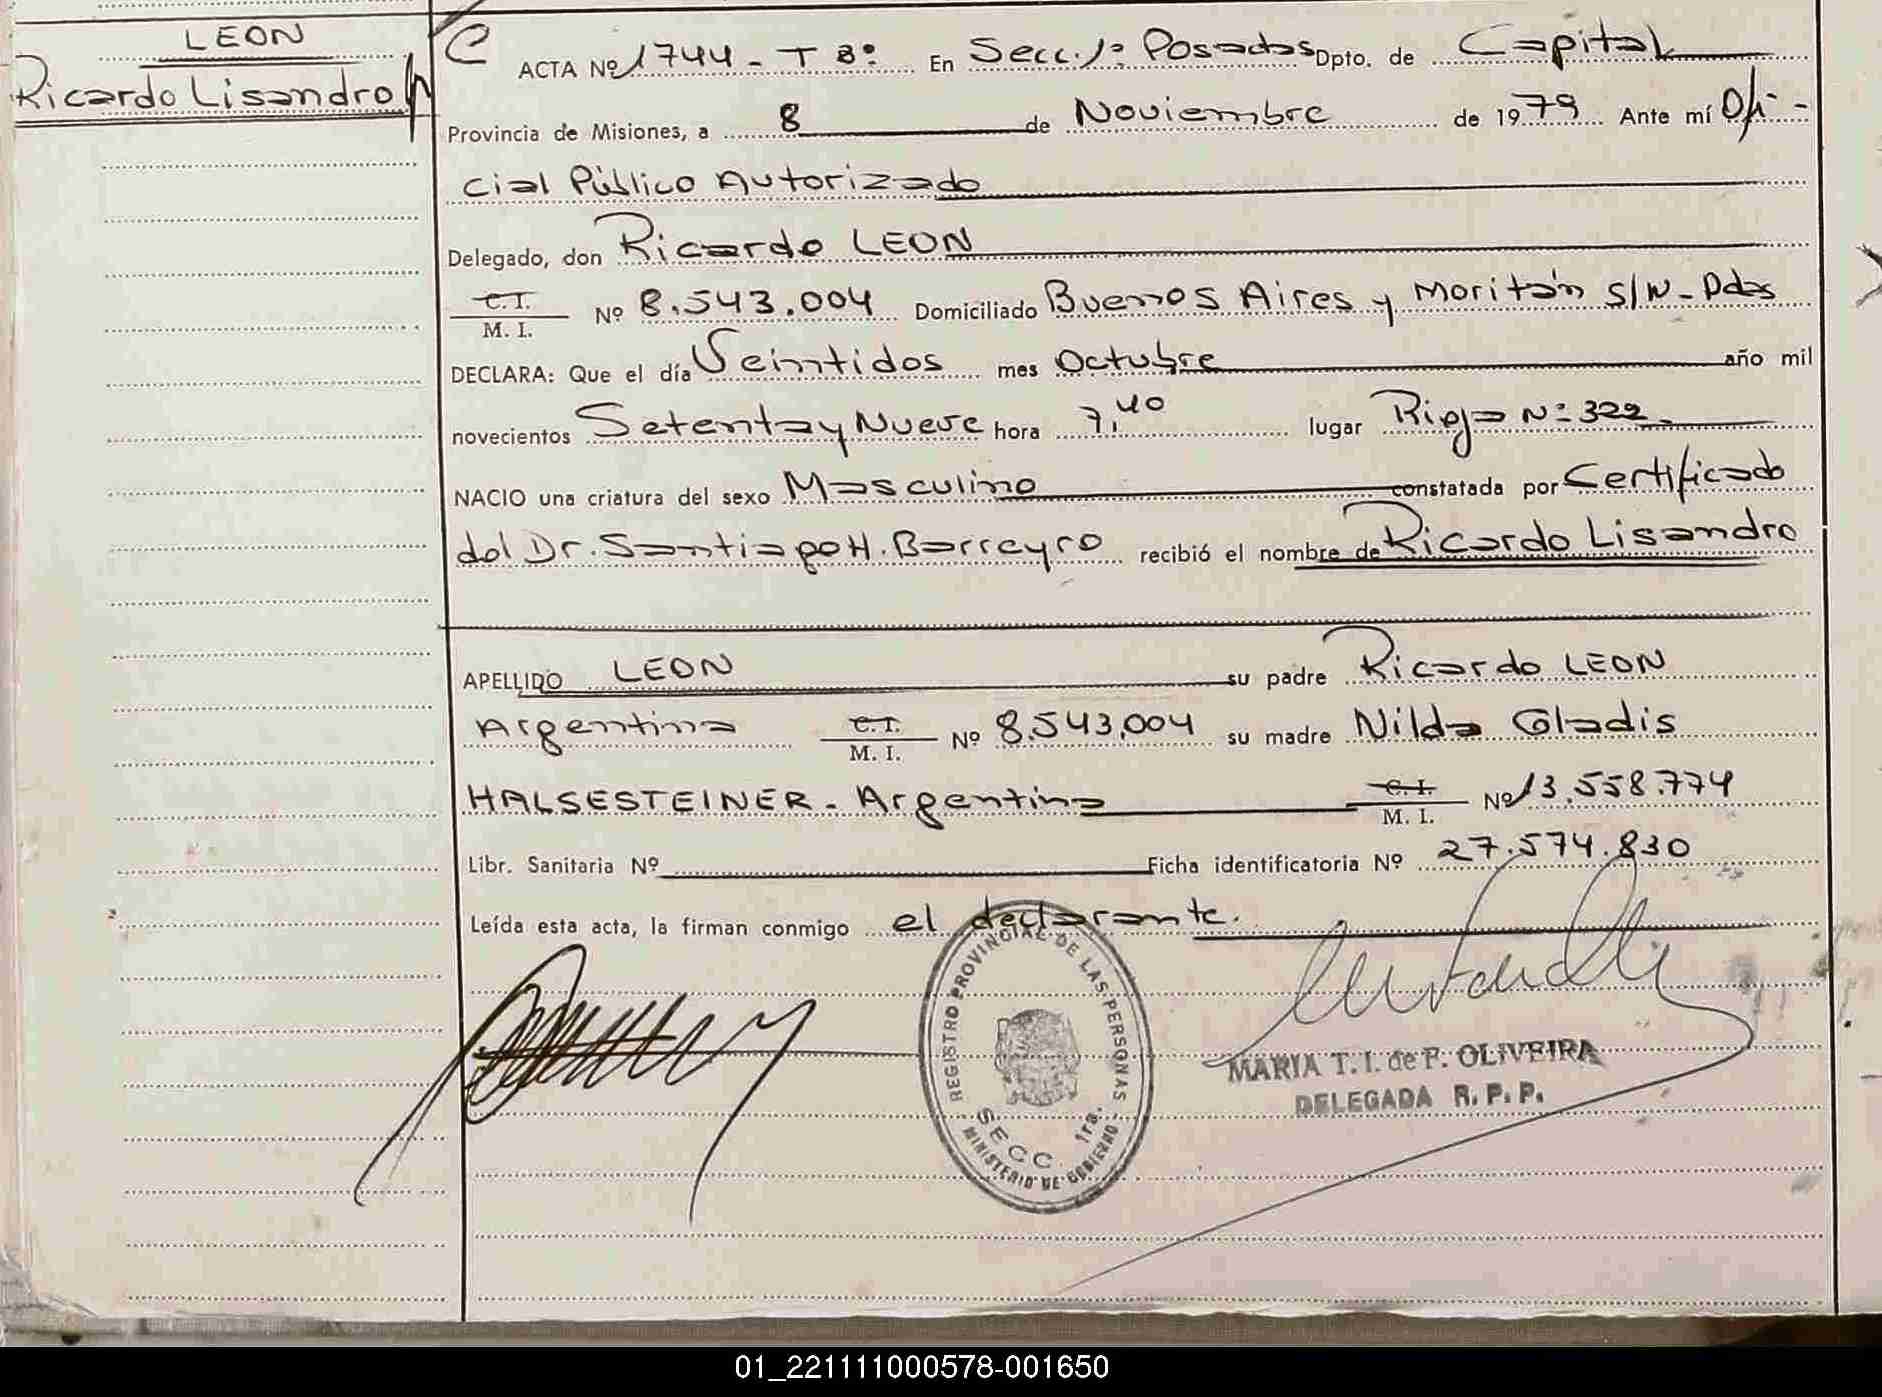 LEON
Ricardo Lisandro
C ACTA Nº 1744 - T 8º. En Secc. 1º Posadas Dpto. de Capital
Provincia de Misiones, a 8 de Noviembre de 1979 Ante mí Ofi-
cial Público Autorizado
Delegado, don Ricardo LEON
C.I. M. I. Nº 8.543.004 Domiciliado Buenos Aires y Moritán S/N - Pdas
DECLARA: Que el día Veintidos mes Octubre año mil
novecientos Setenta y Nueve hora 7,40 lugar Rioja Nº 322.
NACIO una criatura del sexo Masculino constatada por Certificado
del Dr. Santiago H. Barreyro recibió el nombre de Ricardo Lisandro
APELLIDO LEON su padre Ricardo LEON
Argentina C.I. M. I. Nº 8.543.004 su madre Nilda Gladis
HALSESTEINER - Argentina C.I. M. I. Nº 13.558.774
Libr. Sanitaria Nº Ficha identificatoria Nº 27.574.830
Leída esta acta, la firman conmigo el declarante.
REGISTRO PROVINCIAL DE LAS PERSONAS
SECC. 1ra.
MINISTERIO DE GOBIERNO
MARIA T. I. de P. OLIVEIRA
DELEGADA R. P. P.
01_221111000578-001650